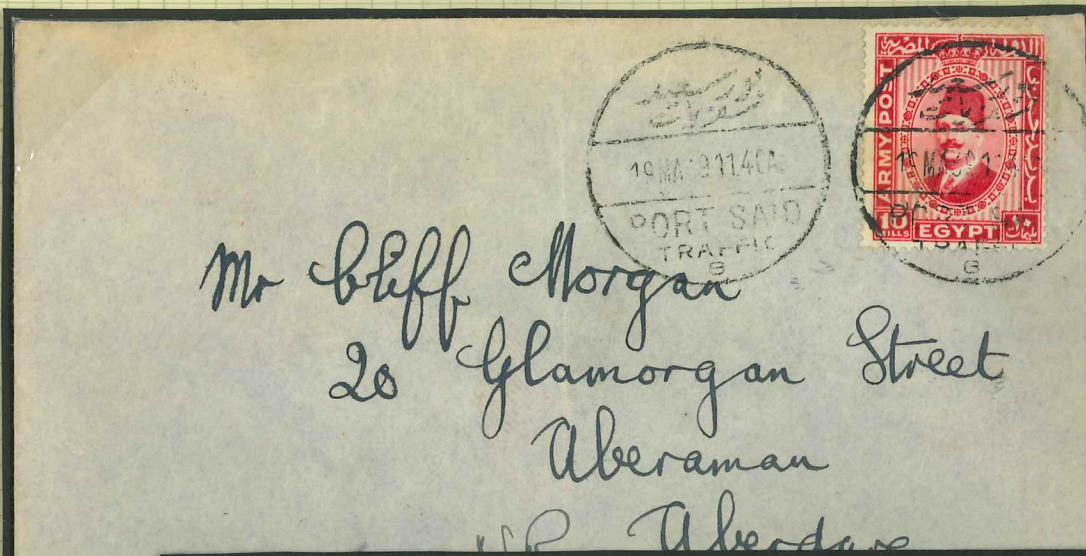 بور سعيد
19 MA 39 11.40A
PORT SAID
TRAFFIC
ARMY POST
10
MILLS
EGYPT
Mr Cliff Morgan
20 Glamorgan Street
Aberaman
Nr Aberdare